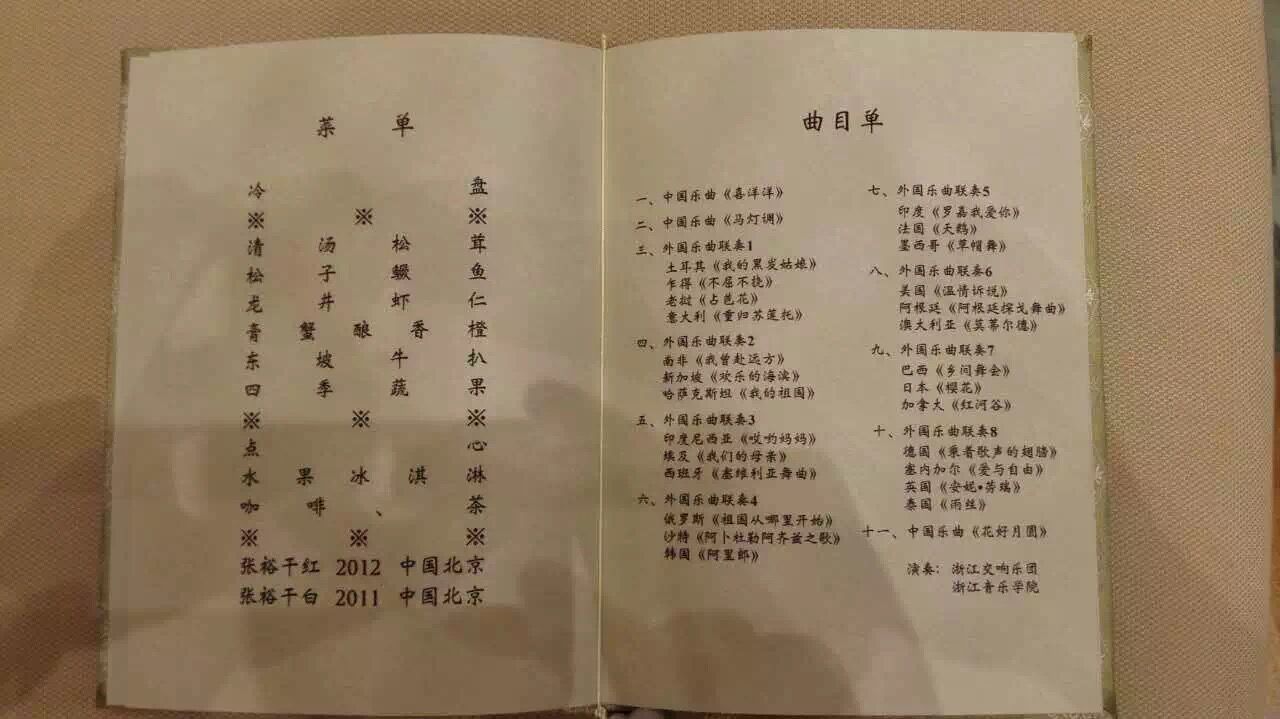 菜单
冷盘
※ ※ ※
清汤松茸
松子鳜鱼
龙井虾仁
膏蟹酿香橙
东坡牛扒
四季蔬果
※ ※ ※
点心
水果冰淇淋
咖啡、茶
※ ※ ※
张裕干红 2012 中国北京
张裕干白 2011 中国北京
曲目单
一、中国乐曲《喜洋洋》
二、中国乐曲《马灯调》
三、外国乐曲联奏1
土耳其《我的黑发姑娘》
乍得《不屈不挠》
老挝《占芭花》
意大利《重归苏莲托》
四、外国乐曲联奏2
南非《我曾赴远方》
新加坡《欢乐的海滨》
哈萨克斯坦《我的祖国》
五、外国乐曲联奏3
印度尼西亚《哎哟妈妈》
埃及《我们的母亲》
西班牙《塞维利亚舞曲》
六、外国乐曲联奏4
俄罗斯《祖国从哪里开始》
沙特《阿卜杜勒阿齐兹之歌》
韩国《阿里郎》
七、外国乐曲联奏5
印度《罗嘉我爱你》
法国《天鹅》
墨西哥《草帽舞》
八、外国乐曲联奏6
美国《温情诉说》
阿根廷《阿根廷探戈舞曲》
澳大利亚《莫蒂尔德》
九、外国乐曲联奏7
巴西《乡间舞会》
日本《樱花》
加拿大《红河谷》
十、外国乐曲联奏8
德国《乘着歌声的翅膀》
塞内加尔《爱与自由》
英国《安妮•劳瑞》
泰国《雨丝》
十一、中国乐曲《花好月圆》
演奏：浙江交响乐团
浙江音乐学院